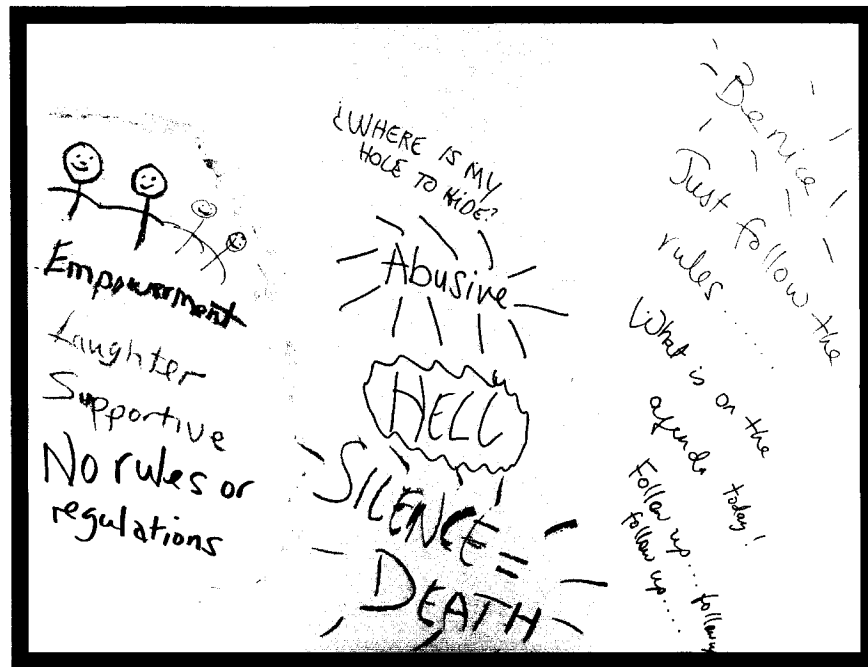 Empowerment
Laughter
Supportive
No rules or
regulations
¿WHERE IS MY
HOLE TO HIDE?
Abusive
HELL
SILENCE =
DEATH
Be nice!
Just follow the
rules......
What is on the
agenda today!
Follow up... follow up
follow up.....